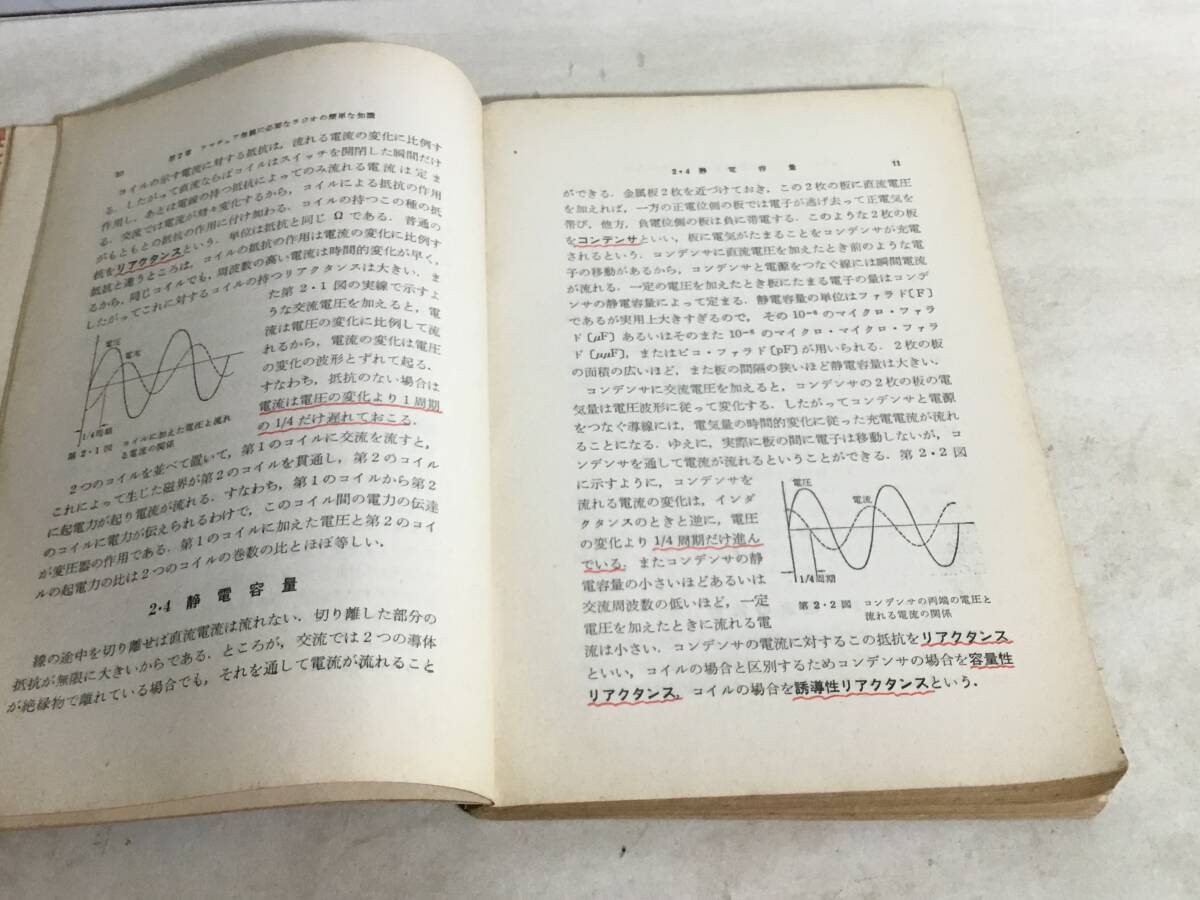 10
第2章 アマチュア無線に必要なラジオの簡単な知識
コイルの示す電流に対する抵抗は，流れる電流の変化に比例す
る．したがって直流ならばコイルはスイッチを開閉した瞬間だけ
作用し，あとは電線の持つ抵抗によってのみ流れる電流は定ま
る．交流では電流が刻々変化するから，コイルによる抵抗の作用
がもともとの抵抗の作用に付け加わる．コイルの持つこの種の抵
抗をリアクタンスという．単位は抵抗と同じ Ω である．普通の
抵抗と違うところは，コイルの抵抗の作用は電流の変化に比例す
るから，同じコイルでも，周波数の高い電流は時間的変化が早く，
したがってこれに対するコイルの持つリアクタンスは大きい．ま
た第2・1図の実線で示すよ
うな交流電圧を加えると，電
流は電圧の変化に比例して流
れるから，電流の変化は電圧
の変化の波形とずれて起る．
すなわち，抵抗のない場合は
電流は電圧の変化より1周期
の1/4だけ遅れておこる．
電圧
電流
1/4周期
第2・1図 コイルに加えた電圧と流れ
る電流の関係
2つのコイルを並べて置いて，第1のコイルに交流を流すと，
これによって生じた磁界が第2のコイルを貫通し，第2のコイル
に起電力が起り電流が流れる．すなわち，第1のコイルから第2
のコイルに電力が伝えられるわけで，このコイル間の電力の伝達
が変圧器の作用である．第1のコイルに加えた電圧と第2のコイ
ルの起電力の比は2つのコイルの巻数の比とほぼ等しい．
2・4 静電容量
線の途中を切り離せば直流電流は流れない．切り離した部分の
抵抗が無限に大きいからである．ところが，交流では2つの導体
が絶縁物で離れている場合でも，それを通して電流が流れること
2・4 静電容量
11
ができる．金属板2枚を近づけておき，この2枚の板に直流電圧
を加えれば，一方の正電位側の板では電子が逃げ去って正電気を
帯び，他方，負電位側の板は負に帯電する．このような2枚の板
をコンデンサといい，板に電気がたまることをコンデンサが充電
されるという．コンデンサに直流電圧を加えたとき前のような電
子の移動があるから，コンデンサと電源をつなぐ線には瞬間電流
が流れる．一定の電圧を加えたとき板にたまる電子の量はコンデ
ンサの静電容量によって定まる．静電容量の単位はファラド〔F〕
であるが実用上大きすぎるので，その10⁻⁶のマイクロ・ファラ
ド〔μF〕あるいはそのまた10⁻⁶のマイクロ・マイクロ・ファラ
ド〔μμF〕，またはピコ・ファラド〔pF〕が用いられる．2枚の板
の面積の広いほど，また板の間隔の狭いほど静電容量は大きい．
コンデンサに交流電圧を加えると，コンデンサの2枚の板の電
気量は電圧波形に従って変化する．したがってコンデンサと電源
をつなぐ導線には，電気量の時間的変化に従った充電電流が流れ
ることになる．ゆえに，実際に板の間に電子は移動しないが，コ
ンデンサを通して電流が流れるということができる．第2・2図
に示すように，コンデンサを
流れる電流の変化は，インダ
クタンスのときと逆に，電圧
の変化より1/4周期だけ進ん
でいる．またコンデンサの静
電容量の小さいほどあるいは
交流周波数の低いほど，一定
電圧を加えたときに流れる電
電圧
電流
1/4周期
第2・2図 コンデンサの両端の電圧と
流れる電流の関係
流は小さい．コンデンサの電流に対するこの抵抗をリアクタンス
といい，コイルの場合と区別するためコンデンサの場合を容量性
リアクタンス，コイルの場合を誘導性リアクタンスという．